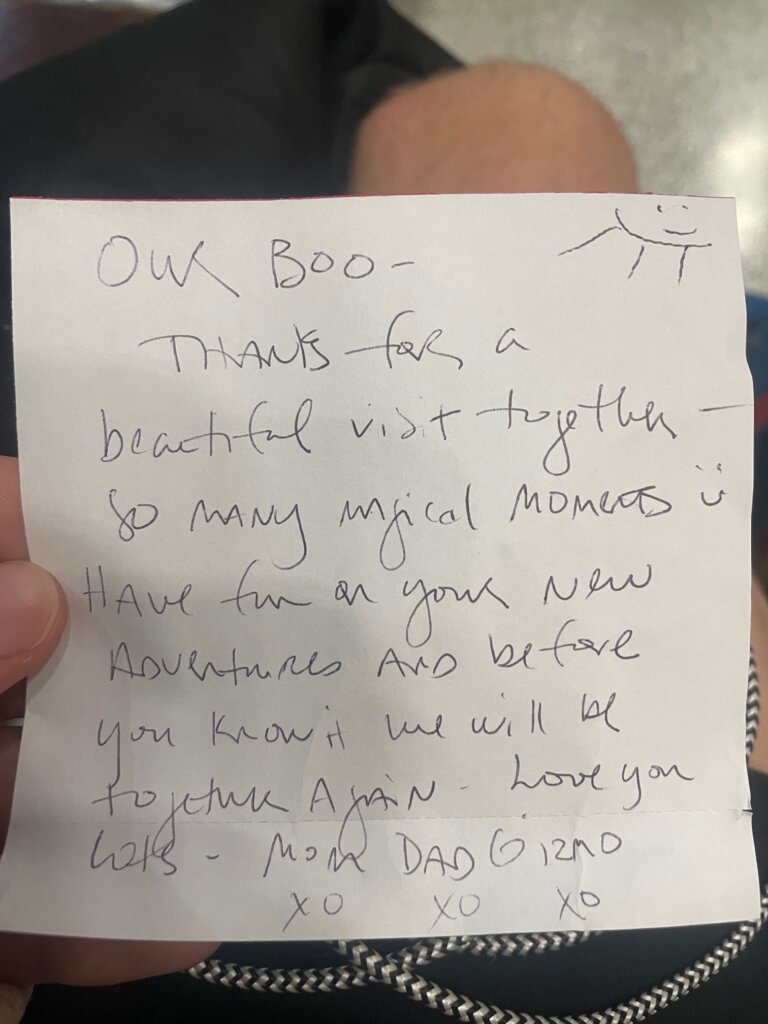 OUR BOO-
THANKS for a
beautiful visit together -
SO MANY magical MOMENTS ü
HAVE fun on your NEW
ADVENTURES AND before
you know it we will be
together AGAIN - Love you
lots - MOM DAD GIZMO
XO XO XO